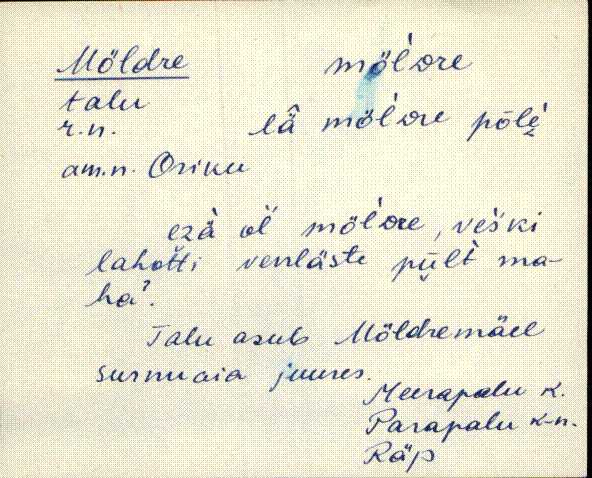 Möldre möl'dre
talu
r.n. lǟ möl'dre põlè
am.n. Oriku
ezä ol̀l möl'dre, veški
lahotti venläste püült ma-
haʔ.
Talu asub Möldremäel
surnuaia juures.
Meerapalu k.
Parapalu k-n.
Räp